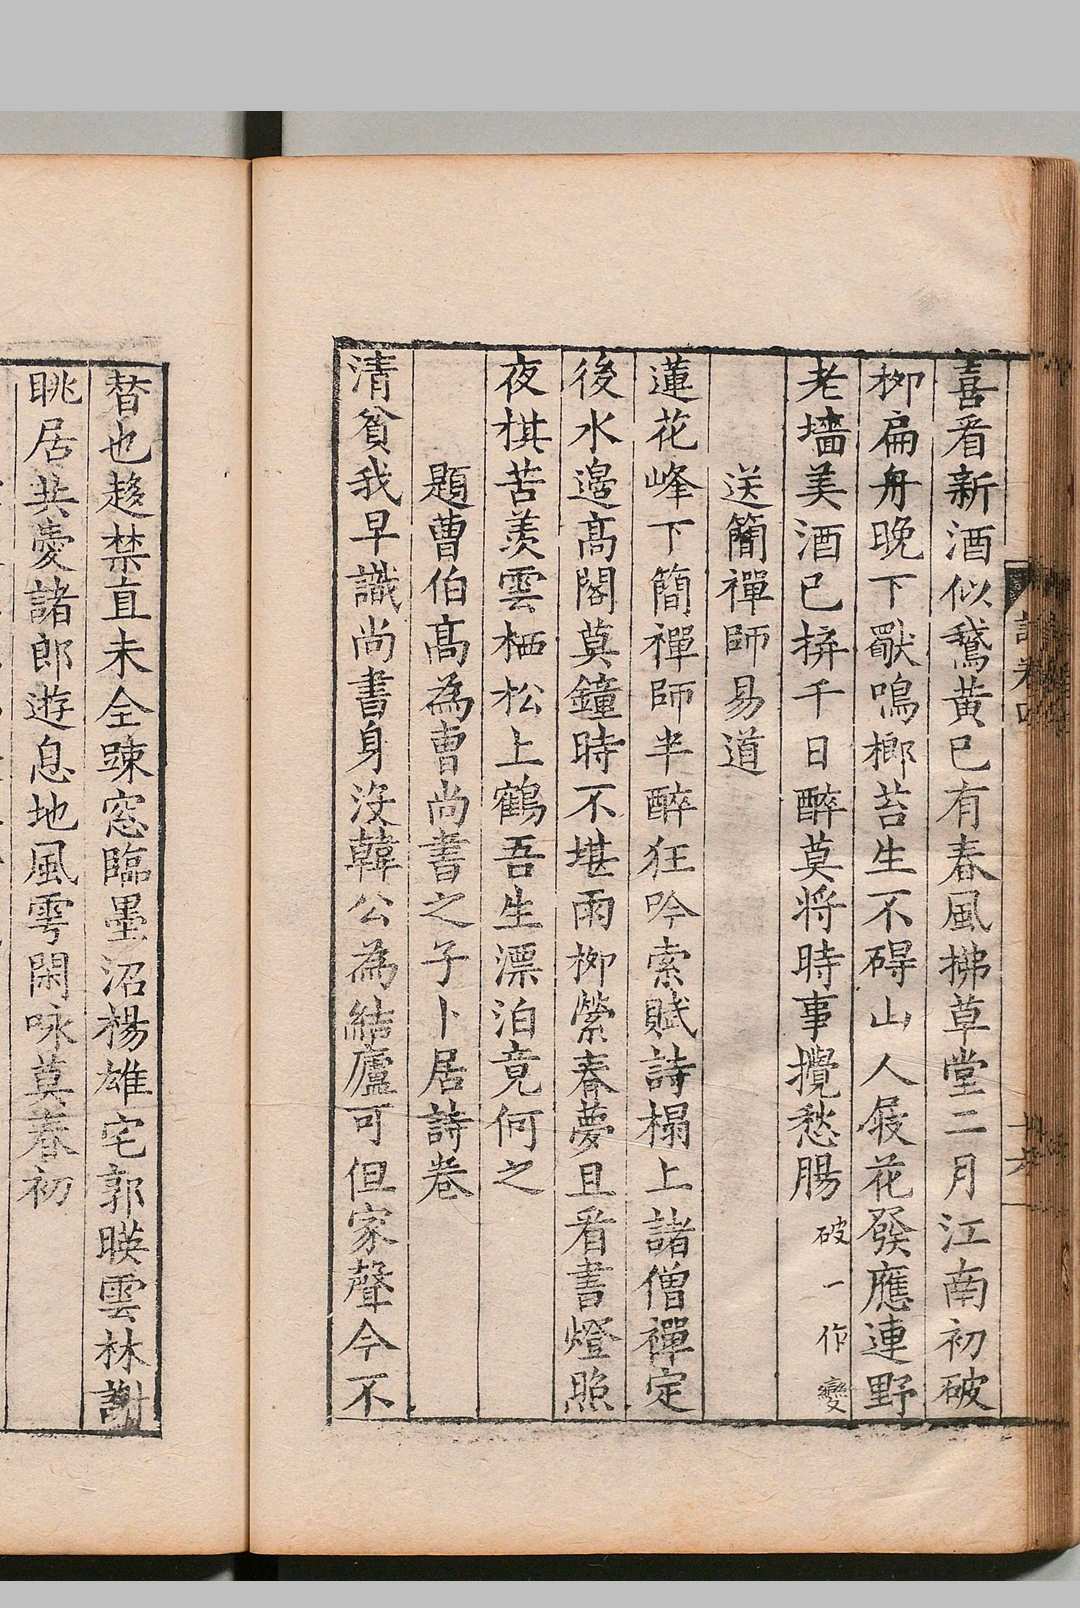 喜看新酒似鵞黃已有春風拂草堂二月江南初破
柳扁舟晚下歇鳴榔苔生不碍山人屐花發應連野
老墻美酒已拚千日醉莫將時事攪愁腸 破一作變
送簡禪師易道
蓮花峰下簡禪師半醉狂吟索賦詩榻上諸僧禪定
後水邉髙閣莫鐘時不堪雨柳縈春夢且看書燈照
夜棋苦羡雲栖松上鶴吾生漂泊竟何之
題曹伯髙為曹尚書之子卜居詩卷
清貧我早識尚書身沒韓公為結廬可但家聲今不
替也趍禁直未全踈窓臨墨沼楊雄宅郭暎雲林謝
眺居共愛諸郎遊息地風雩閑咏莫春初